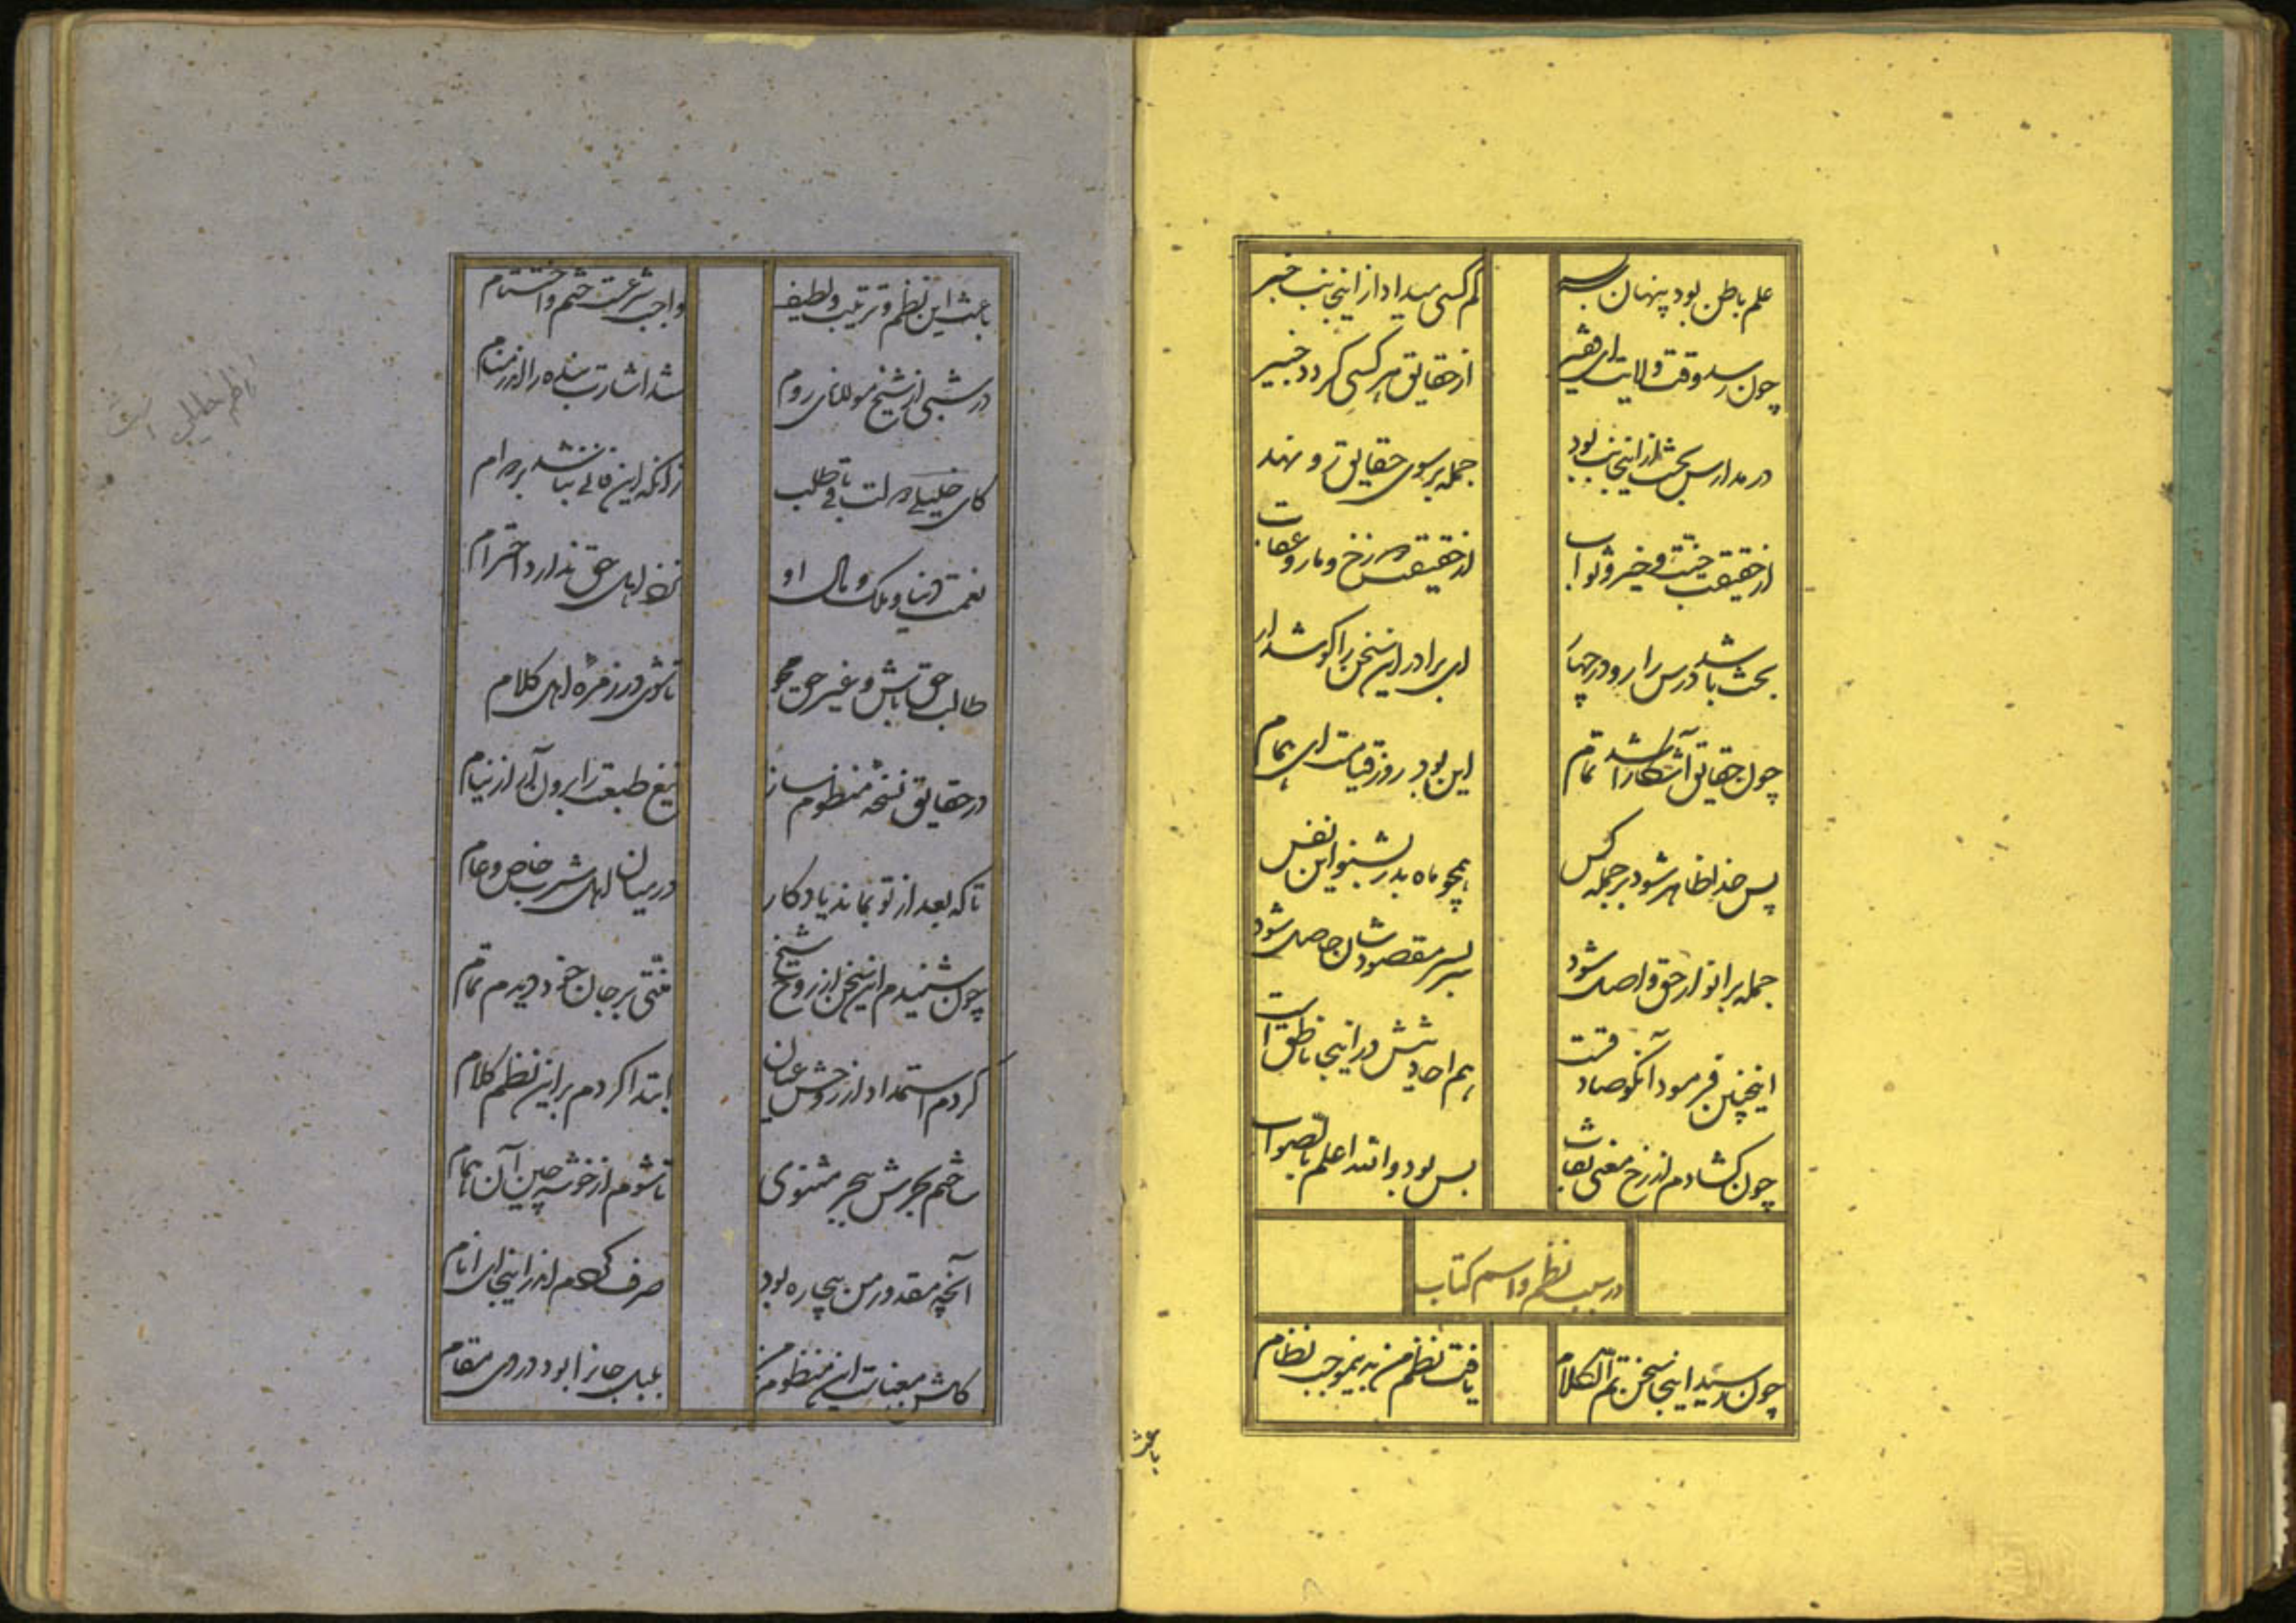 علم باطن بود پنهان
کم کسی میداد از اینجانب خبر
چون رسد وقت ولایت ای فقیر
از حقایق هر کسی کردد خبیر
در مدارس بحث از اینجانب بود
جمله بر سوی حقایق رو نهند
از حقیقت جنت و خیر و ثواب
از حقیقت دوزخ و نار و عقاب
بحث باشد درس را رو در جهار
ای برادر این سخن را کوش دار
چون حقایق آشکارا شد تمام
این بود روز قیامت ای همام
پس خدا ظاهر شود بر جمله کس
همچو ماه بدر بشنو این نفس
جمله بر انوار حق واصل شود
سر بسر مقصودشان حاصل شود
اینچنین فرمود آنکو صادقست
هم احادیثش در اینجا ناطق است
چون کشادم از رخ معنی نقاب
بس بود والله اعلم بالصواب
در سبب نظم و اسم کتاب
چون رسید اینجا سخن تم الکلام
یافت نظم من بدینموجب نظام
باعث
باعث این نظم و ترتیب و لطیف
واجب شرعت ختم و اختتام
در شبی از شیخ مولانای روم
شد اشارت بنده را اندر منام
کای خلیلی دولت باقی طلب
زانکه این فانی نباشد بر دوام
نعمت دنیا و ملک و مال او
نزد اهل حق ندارد احترام
طالب حق باش و غیر حق مجو
تا شوی در زمره اهل کلام
در حقایق نسخه منظوم ساز
تیغ طبعت را برون آر از نیام
تا که بعد از تو بماند یادکار
در میان اهل شرب خاص و عام
چون شنیدم این سخن از روح شیخ
منتی بر جان خود دیدم تمام
کردم استمداد از روحش عیان
ابتدا کردم بر این نظم کلام
ساختم بحرش ببحر مثنوی
تا شوم از خوشه چین آن همام
آنچه مقدور من بیچاره بود
صرف کردم اندر اینجا ای انام
کلشن معنیست این منظوم من
بلبل جانرا بود در وی مقام